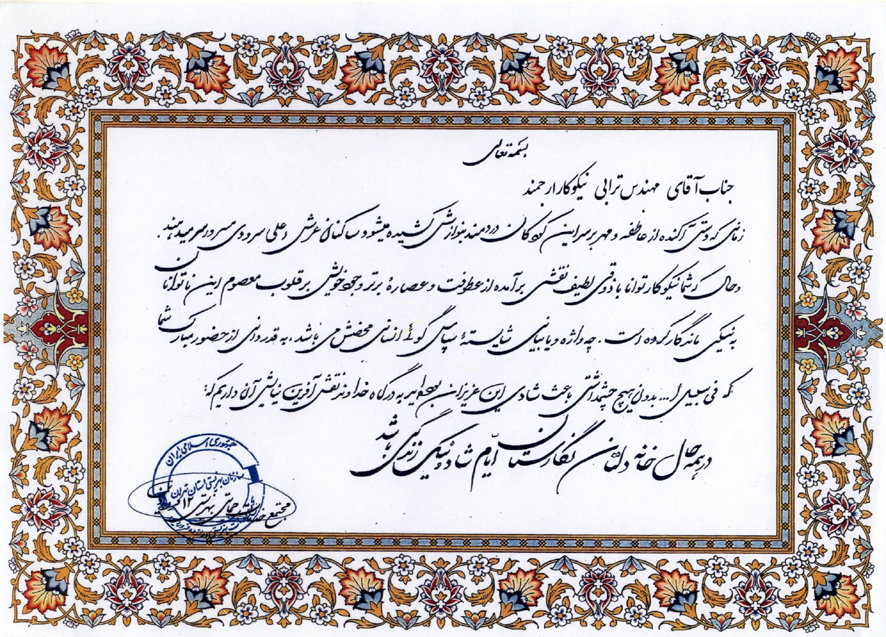 بسمه تعالی
جناب آقای مهندس ترابی نیکوکار ارجمند
زمانی که دستی آکنده از عاطفه و مهر بر سر این کودکان دردمند بنوازش کشیده میشود ساکنان عرش اعلی سرودی سرور سر میدهند.
و حال که شما نیکوکار توانا با ذوقی لطیف نقشی برآمده از عطوفت و عصارهٔ برتر وجود خویش بر قلوب معصوم این ناتوانان
به نیکی ماندگار کرده است. چه واژه و یا بیانی شایستهٔ سپاس گوئی انسانی محضش می باشد، به قدردانی از حضور مبارک شما
که فی سبیل ا... بدون هیچ چشمداشتی باعث شادی این عزیزان بوده اید به درگاه خداوند نقش آفرین نیایش آن داریم که:
در همه حال خانه دلتان نگارستان ایام شاد و نیکی زندگی باشد
جمهوری اسلامی ایران
سازمان بهزیستی استان تهران
مجتمع خدمات بهزیستی